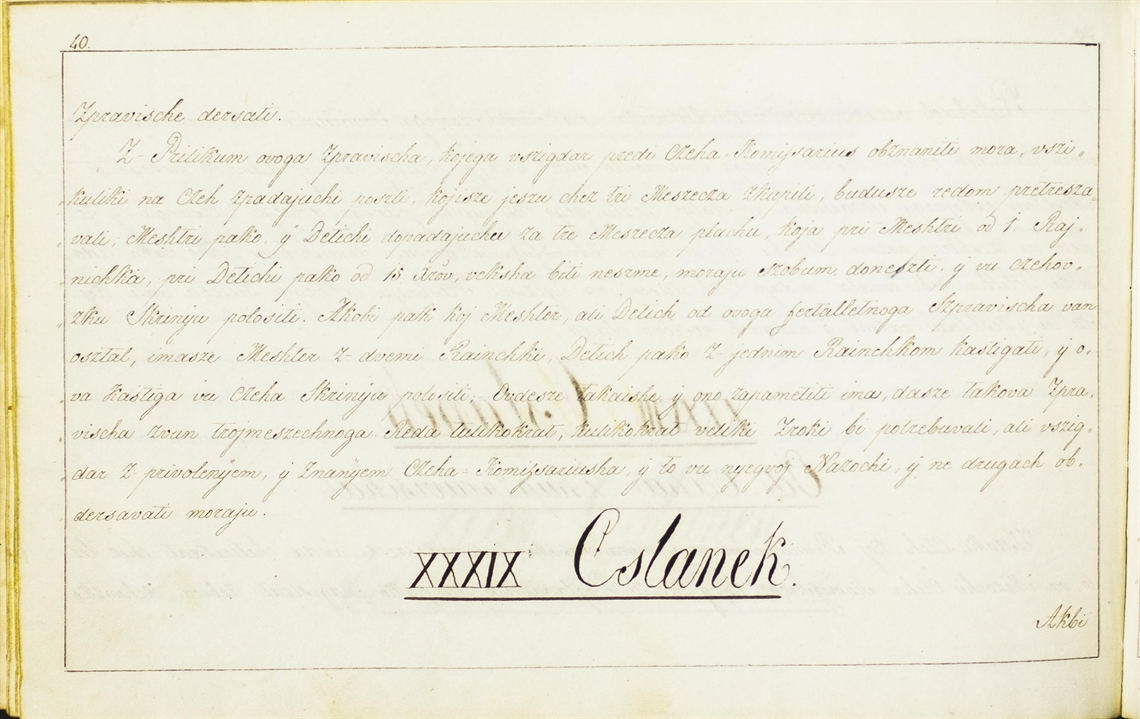 40.
Zpravische dersati.
Z-Prilikum ovoga Zpravischa, kojega vszigdar predi Czeha-Komissarius obznaniti mora, vszi-
kuliki na Czeh zpadajuchi poszli, kojisze jeszu chez tri Meszecza zkupili, budusze redom pretresza-
vali, Meshtri pako, y Detichi dopadajuchu za tre Meszecza plachu, koja pri Meshtri od 1. Raj-
nichka, pri Detichu pako od 15 Xrōv, veksha biti neszme, moraju szobum doneszti, y vu czehov-
zku Skrinyu polositi. Akobi pak koj Meshter, ali Detich od ovoga fertalletnoga Szpravischa van
osztal, imasze Meshter z-dvemi Rainchki, Detich pako z-jednim Rainchkom kastigati, y o-
va kastiga vu Czeha Skrinyu polositi; Ovdesze takaishe y ono zapametiti ima, dasze takova Zpra-
vischa zvun trojmeszechnoga Reda tulikokrat, kulikokrat veliki Zroki bi potrebuvali, ali vszig-
dar z-privolenyem, y znanyem Czeha-Komissariusha, y to vu nyegvoj Nazochi, y ne drugach ob-
dersavati moraju.
XXXIX Cslanek.
Akbi